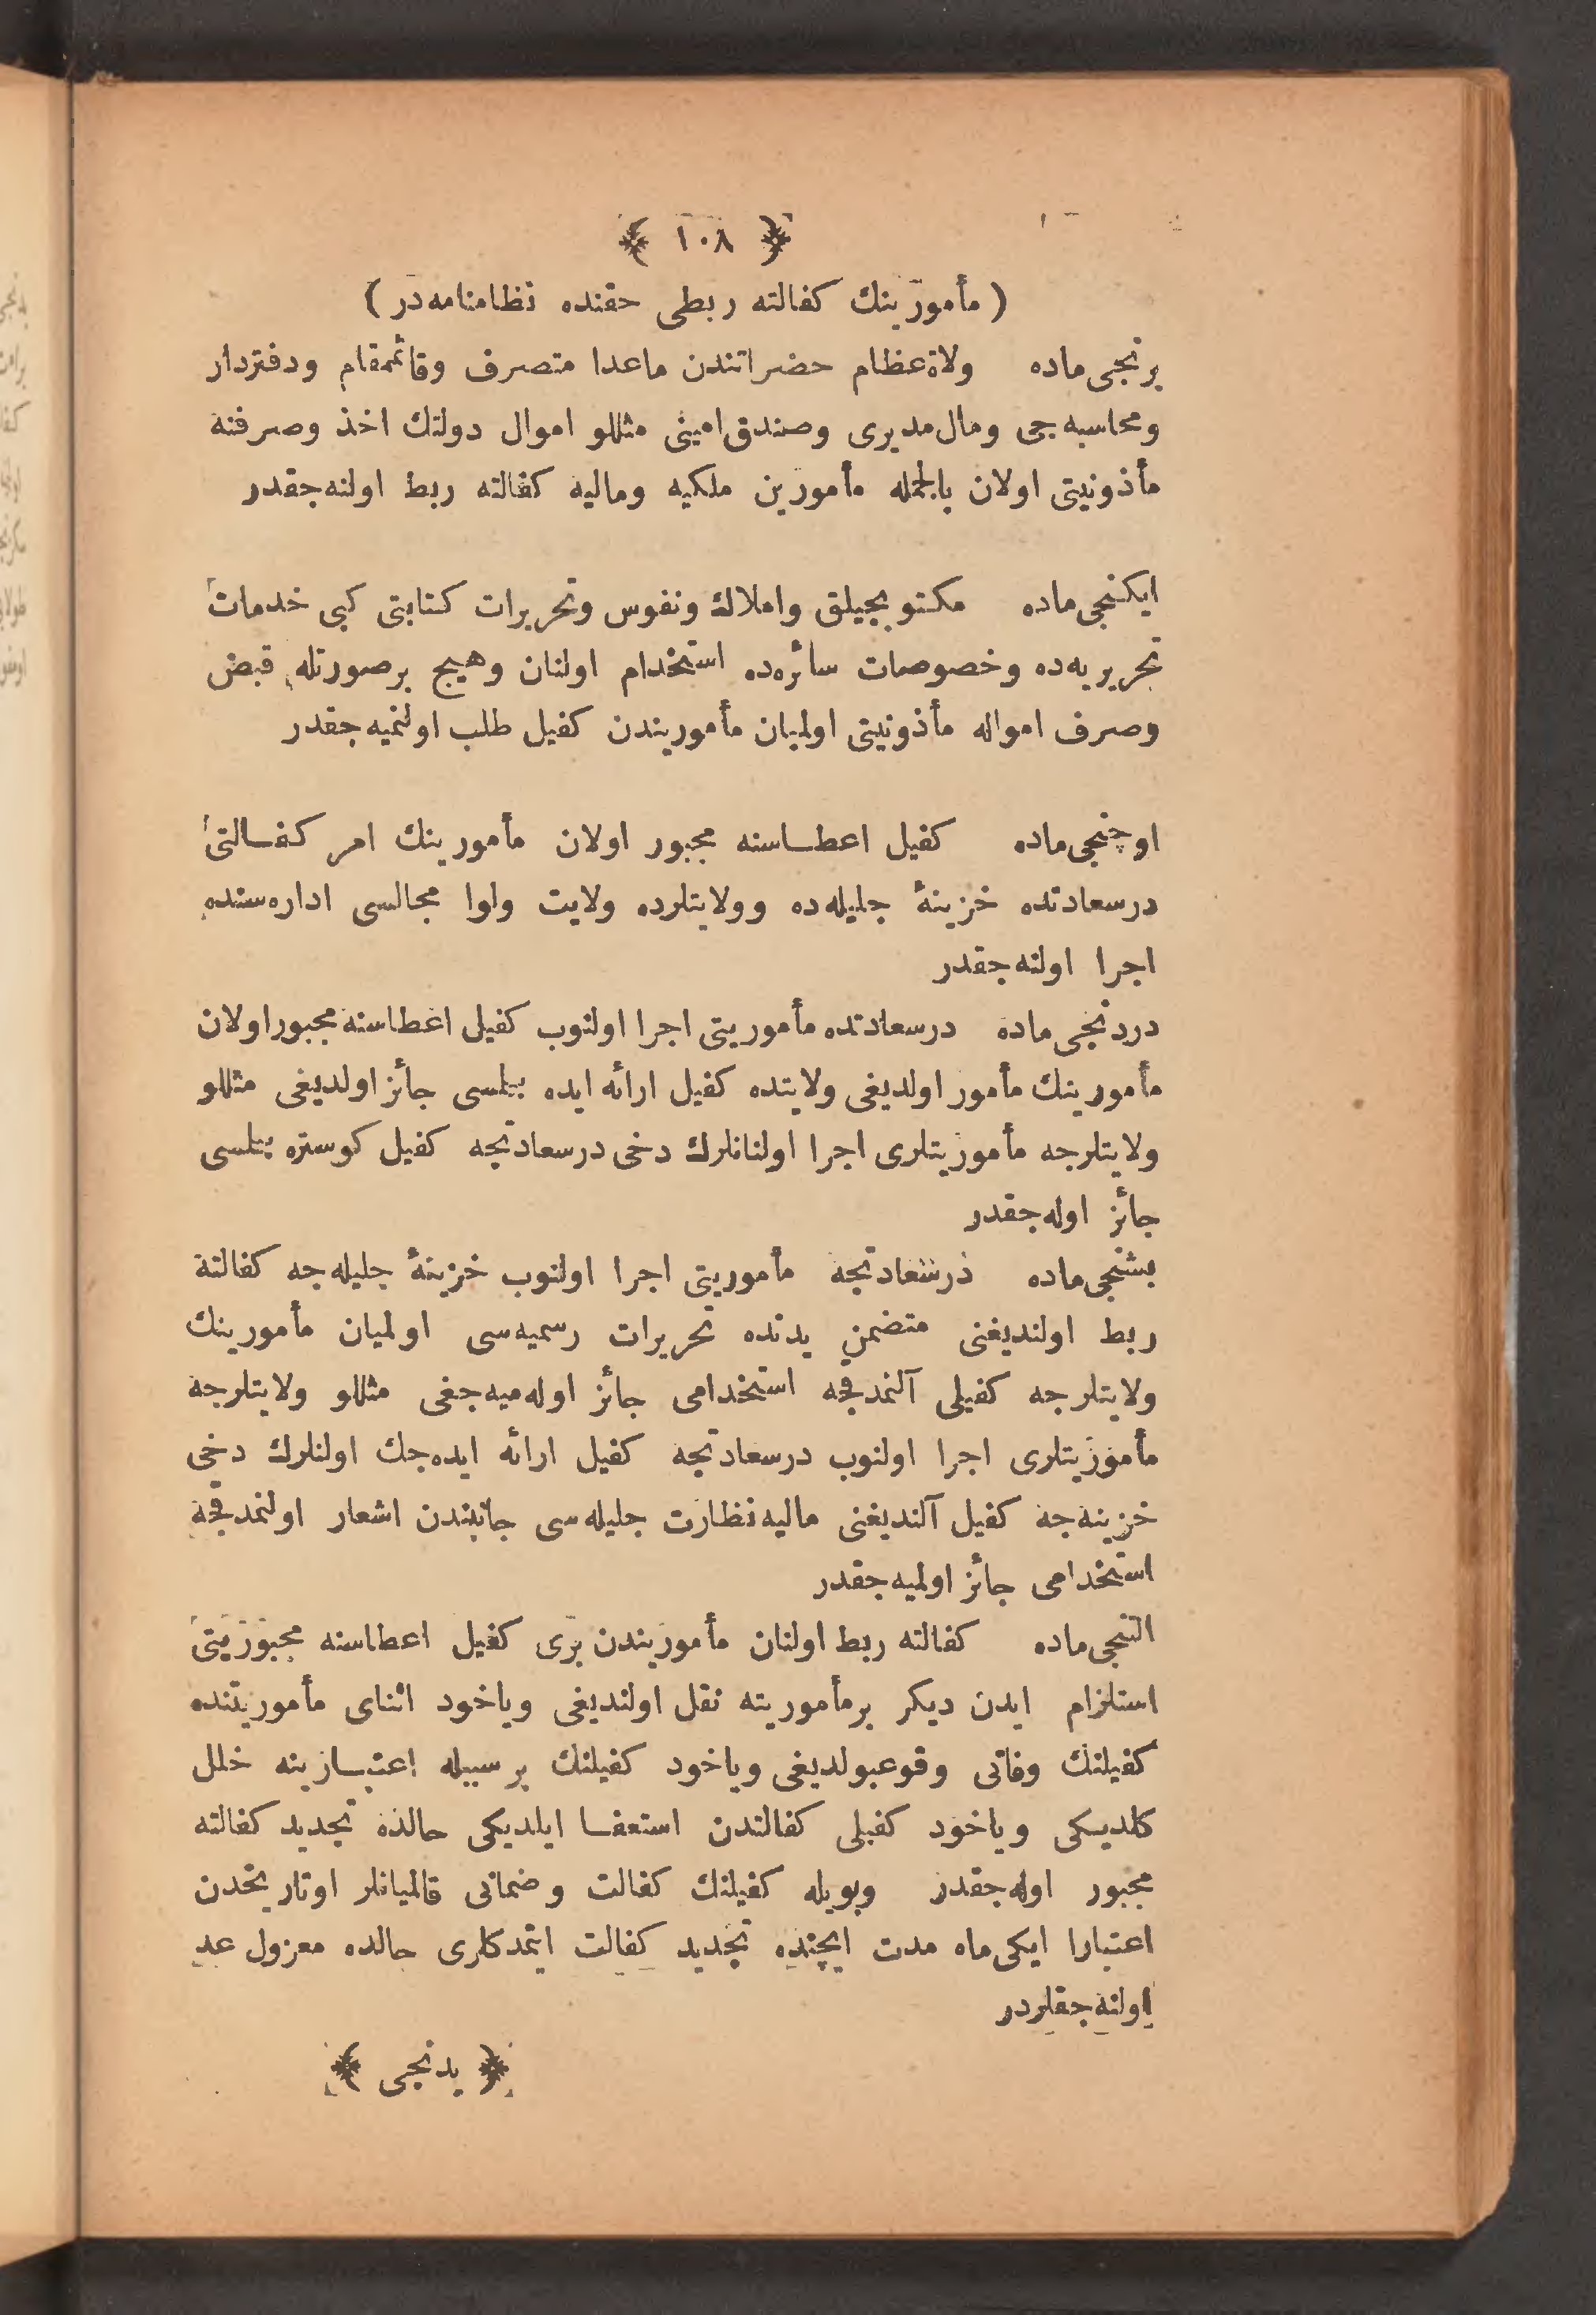 ﴿ ١٠٨ ﴾
( مأمورينك كفالته ربطى حقنده نظامنامه‌در )
برنجى ماده ولاة عظام حضراتندن ماعدا متصرف وقائممقام ودفتردار
ومحاسبه‌جى ومال مديرى وصندق امينى مثللو اموال دولتك اخذ وصرفنه
مأذونيتى اولان بالجمله مأمورين ملكيه وماليه كفالته ربط اولنه‌جقدر
ايكنجى ماده مكتوبجيلق واملاك ونفوس وتحريرات كتابتى كبى خدمات
تحريريه‌ده وخصوصات سائره‌ده استخدام اولنان وهيج برصورتله قبض
وصرف امواله مأذونيتى اولميان مأموريندن كفيل طلب اولنميه‌جقدر
اوچنجى ماده كفيل اعطاسنه مجبور اولان مأمورينك امر كفالتى
درسعادتده خزينۀ جليله‌ده وولايتلرده ولايت ولوا مجالسى اداره‌سنده
اجرا اولنه‌جقدر
دردنجى ماده درسعادتده مأموريتى اجرا اولنوب كفيل اعطاسنه مجبور اولان
مأمورينك مأمور اولديغى ولايتده كفيل ارائه ايده بيلمسى جائز اولديغى مثللو
ولايتلرجه مأموريتلرى اجرا اولنانلرك دخى درسعادتجه كفيل كوستره بيلمسى
جائز اوله‌جقدر
بشنجى ماده درسعادتجه مأموريتى اجرا اولنوب خزينۀ جليله‌جه كفالته
ربط اولنديغنى متضمن يدنده تحريرات رسميه‌سى اولميان مأمورينك
ولايتلرجه كفيلى آلنمدقجه استخدامى جائز اوله‌ميه‌جغى مثللو ولايتلرجه
مأموريتلرى اجرا اولنوب درسعادتجه كفيل ارائه ايده‌جك اولنلرك دخى
خزينه‌جه كفيل آلنديغنى ماليه نظارت جليله‌سى جانبندن اشعار اولنمدقجه
استخدامى جائز اولميه‌جقدر
التنجى ماده كفالته ربط اولنان مأموريندن برى كفيل اعطاسنه مجبوريتى
استلزام ايدن ديكر برمأموريته نقل اولنديغى وياخود اثناى مأموريتنده
كفيلنك وفاتى وقوعبولديغى وياخود كفيلنك برسبيله اعتبارينه خلل
كلديكى وياخود كفيلى كفالتندن استعفا ايلديكى حالده تجديد كفالته
مجبور اوله‌جقدر وبويله كفيلنك كفالت وضمانى قالميانلر اوتاريخدن
اعتبارا ايكى ماه مدت ايچنده تجديد كفالت ايتمدكلرى حالده معزول عد
اولنه‌جقلردر
﴿ يدنجى ﴾